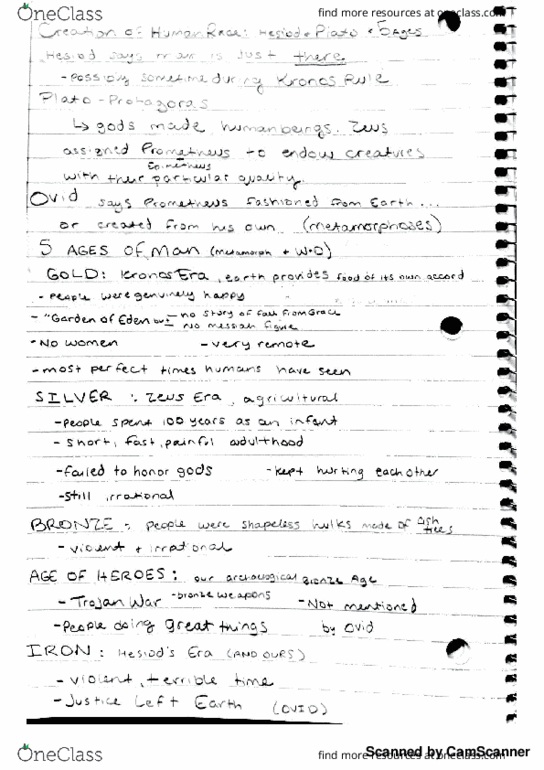 OneClass
find more resources at oneclass.com
Creation of Human Race: Hesiod + Plato + 5 Ages
Hesiod says man is just there.
- possibly sometime during Kronos Rule
Plato - Protagoras
↳ gods made human beings. Zeus
assigned Prometheus to endow creatures
Epimetheus
with their particular quality.
Ovid says Prometheus fashioned from Earth...
or created from his own (metamorphoses)
5 AGES OF MAN (metamorph + W+D)
GOLD: Kronos Era, earth provides food of its own accord
- people were genuinely happy
- "Garden of Eden - no story of fall from Grace
no messiah figure
- NO women - very remote
- most perfect times humans have seen
SILVER : Zeus Era, agricultural
- people spent 100 years as an infant
- short, fast, painful adulthood
- failed to honor gods - kept hurting each other
- still irrational
BRONZE : people were shapeless hulks made of Ash trees
- violent + irrational
AGE OF HEROES: our archaeological Bronze Age
- Trojan War - bronze weapons - Not mentioned
- People doing great things by Ovid
IRON: Hesiod's Era (AND OURS)
- violent, terrible time
- Justice Left Earth (OVID)
OneClass
find more resources at oneclass.com
Scanned by CamScanner